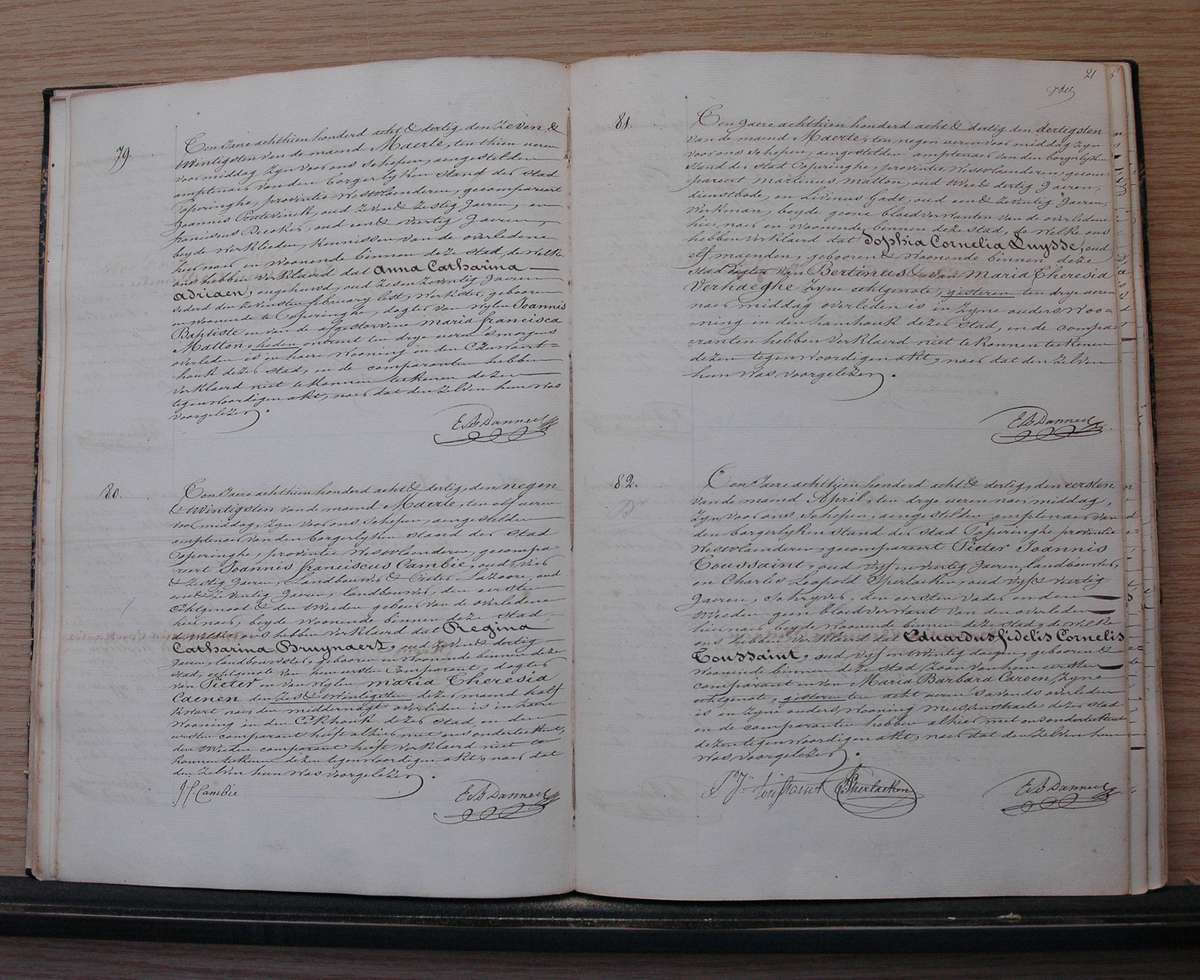 79.
Ten Jaere achthien honderd acht & dertig den zeven &
twintigsten van de maend Maerte, ten thien ueren
voor middag, zyn voor ons Schepen, aengestelden
amptenaer van den borgerlyken stand der stad
Poperinghe, provintie Westvlaenderen, gecompareert
Joannis, oud zeven & zestig Jaeren, en
franciscus, oud een & veertig Jaeren,
beyde werklieden, kennissen van de overledene
hier naer en woonende binnen deze stad, de welke
ons hebben verklaerd dat Anna Catharina
Adriaen, ongehuwd, oud zes en zeventig Jaeren
sederd den february lest, werkster, geboren
en woonende te Poperinghe, dogter van wylen Joannis
Baptiste en van de afgestorvene maria francisca
Matton, heden ten drye ueren 's morgens
overleden is in haere wooning in den
hoek dezer stad, en de comparanten hebben
verklaerd niet te konnen teekenen dezen
tegenwoordigen akt, naer dat den zelven hun was
voorgelezen.
E.B. Danneel
80.
Ten Jaere achthien honderd acht & dertig, den negen
& twintigsten van de maend Maerte, ten elf ueren
voor middag, zyn voor ons Schepen, aengestelden
amptenaer van den borgerlyken stand der stad
Poperinghe, provintie Westvlaenderen, gecompa-
reert Joannis franciscus Cambie, oud
& zestig Jaeren, landbouwer & Pieter, oud
Jaeren, landbouwer, den eersten
Echtgenoot & den tweeden gebuer van de overledene
hier naer, beyde woonende binnen deze stad,
de welke ons hebben verklaerd dat Regina
Catharina Bruynaert, oud & dertig
Jaeren, landbouwster, geboren en woonende binnen deze
stad, echtgenote van hun eersten Comparant, dogter
van Pieter en van wylen maria Theresia
Caenen, den zes & twintigsten dezer maend half
naer den middernagt overleden is in haere
wooning in den hoek dezer stad, en den
eersten comparant heeft alhier met ons onderteekent,
den tweeden comparant heeft verklaerd niet te
konnen teekenen dezen tegenwoordigen akt, naer dat
den zelven hun was voorgelezen.
J f Cambie
E.B. Danneel
21
81.
Ten Jaere achthien honderd acht & dertig den dertigsten
van de maend Maerte, ten negen ueren voor middag, zyn
voor ons Schepen, aengestelden amptenaer van den borgerlyken
stand der stad Poperinghe, provintie Westvlaenderen, gecom-
pareert martinus matton, oud twee & dertig Jaeren,
dienstbode, en Livinus Gadt, oud een & zestig Jaeren,
werkman, beyde geene bloedverwanten van de overledene
hier naer en woonende binnen deze stad, de welke ons
hebben verklaerd dat Sophia Cornelia Luysse, oud
elf maenden, geboren & woonende binnen deze
stad dogter van Bertinus en van Maria Theresia
Verhaeghe zyne echtgenote, gisteren ten drye ueren
naer middag overleden is in zyne ouders woo-
ning in den hamhoek dezer stad, en de compa-
ranten hebben verklaerd niet te konnen teekenen
dezen tegenwoordigen akt, naer dat den zelven
hun was voorgelezen.
E.B. Danneel
82.
Ten Jaere achthien honderd acht & dertig, den eersten
van de maend April, ten drye ueren naer middag,
zyn voor ons Schepen, aengestelden amptenaer van
den borgerlyken stand der stad Poperinghe provintie
Westvlaenderen, gecompareert Pieter Joannis
Toussaint, oud vyf en veertig Jaeren, landbouwer,
en Charles Leopold, oud vyf & veertig
Jaeren, Schryver, den eersten vader en den
tweeden geen bloedverwant van den overleden
hier naer, beyde woonende binnen deze stad, de welke
ons hebben verklaerd dat Eduardus fidelis Cornelis
Toussaint, oud vyf en twintig daegen, geboren &
woonende binnen deze stad, zoon van hun eersten
comparant en van Maria Barbara Carsen zyne
echtgenote, gisteren ten acht ueren 's avonds overleden
is in zyne ouders wooning dezer stad
en de comparanten hebben alhier met ons onderteekent
dezen tegenwoordigen akt, naer dat den zelven hun
was voorgelezen.
P J Toussaint
E.B. Danneel